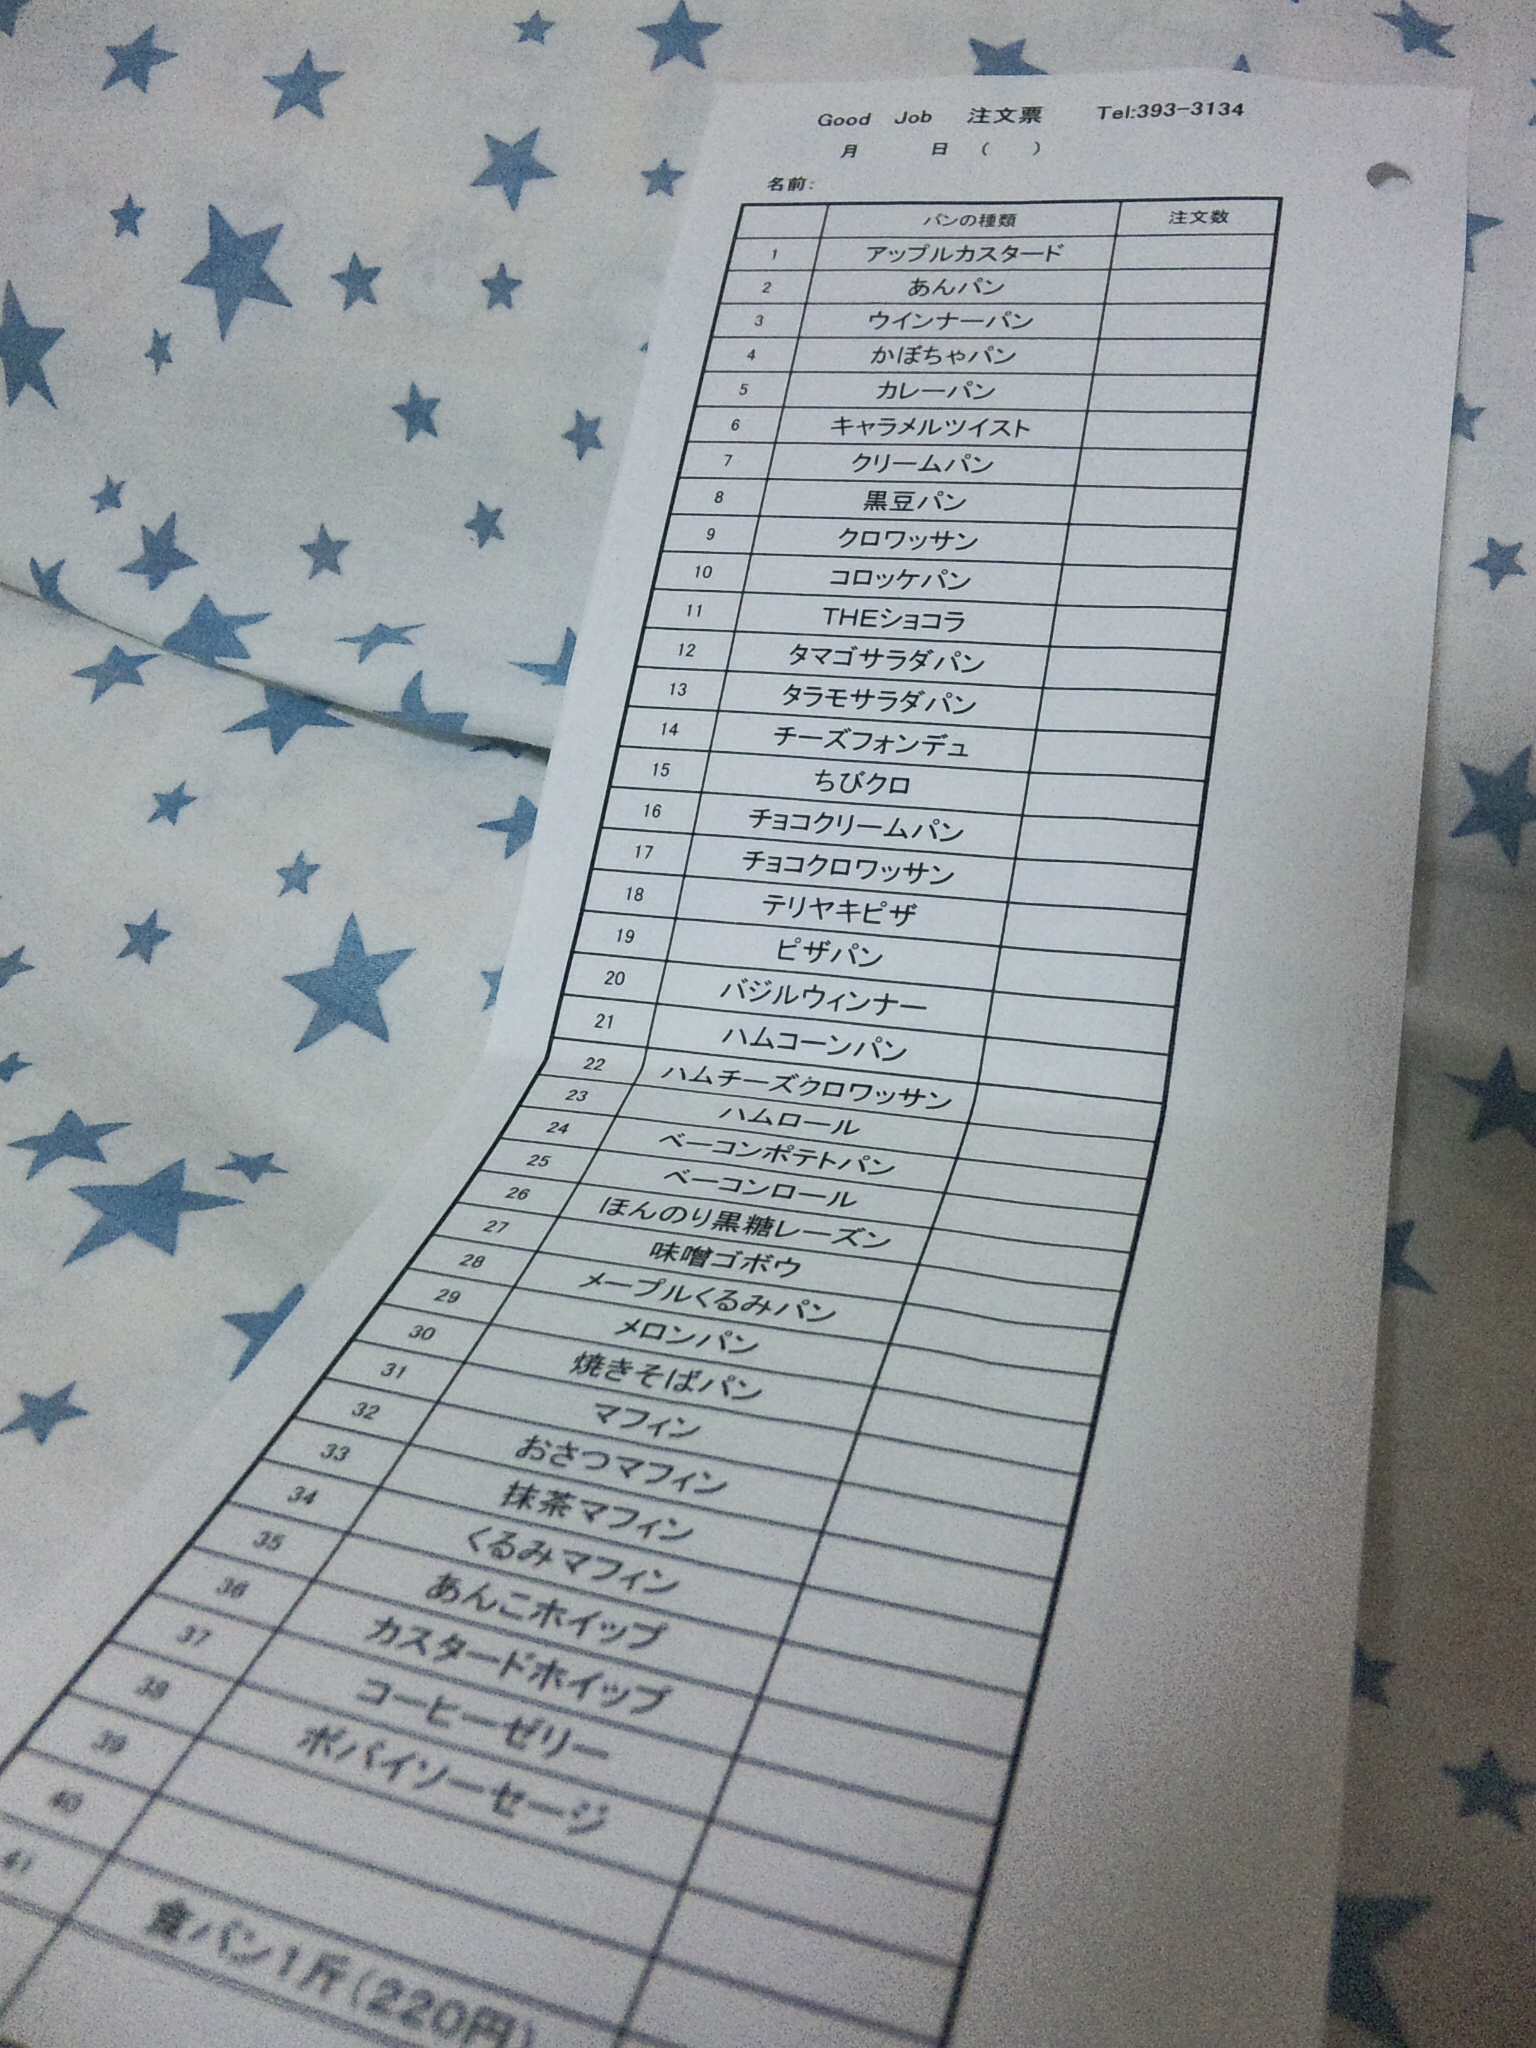 Good Job 注文票 Tel:393-3134
月 日 ( )
名前:
パンの種類 注文数
1 アップルカスタード
2 あんパン
3 ウインナーパン
4 かぼちゃパン
5 カレーパン
6 キャラメルツイスト
7 クリームパン
8 黒豆パン
9 クロワッサン
10 コロッケパン
11 THEショコラ
12 タマゴサラダパン
13 タラモサラダパン
14 チーズフォンデュ
15 ちびクロ
16 チョコクリームパン
17 チョコクロワッサン
18 テリヤキピザ
19 ピザパン
20 バジルウィンナー
21 ハムコーンパン
22 ハムチーズクロワッサン
23 ハムロール
24 ベーコンポテトパン
25 ベーコンロール
26 ほんのり黒糖レーズン
27 味噌ゴボウ
28 メープルくるみパン
29 メロンパン
30 焼きそばパン
31 マフィン
32 おさつマフィン
33 抹茶マフィン
34 くるみマフィン
35 あんこホイップ
36 カスタードホイップ
37 コーヒーゼリー
38 ポパイソーセージ
39
40
41 食パン1斤(220円)